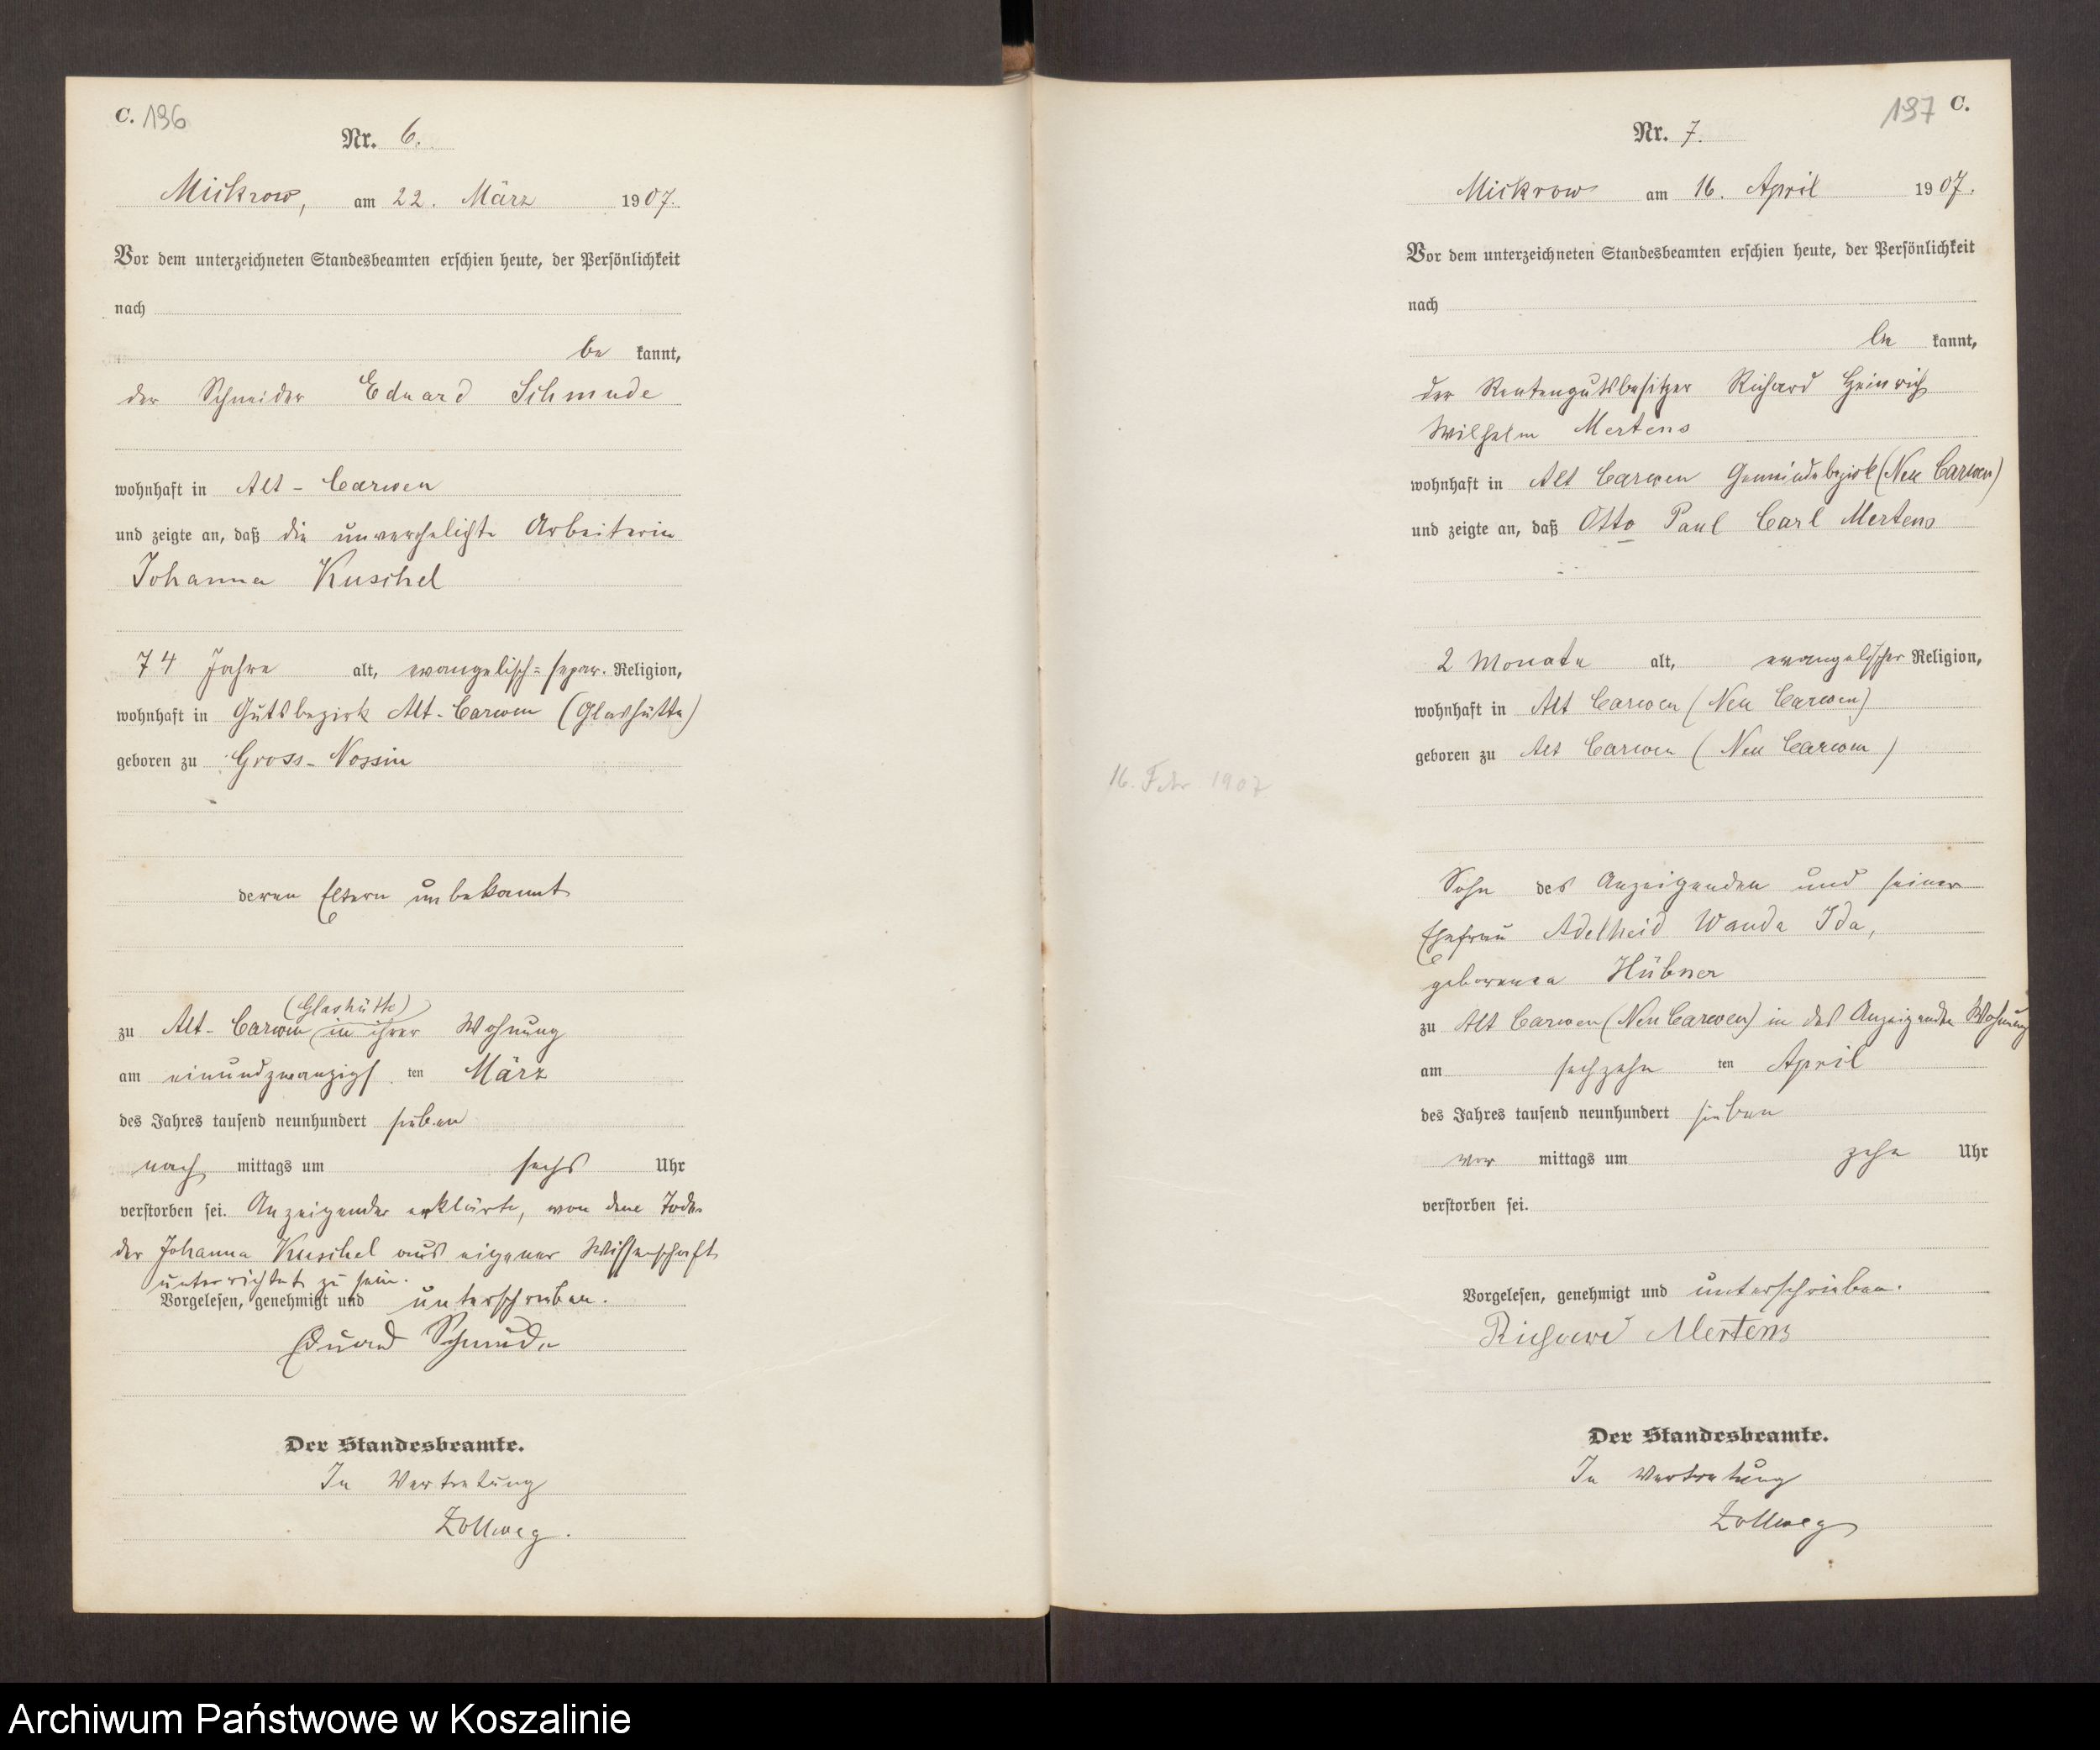 C. 196
Nr. 6.
Mickrow, am 22. März 1907.
Vor dem unterzeichneten Standesbeamten erschien heute, der Persönlichkeit
nach
be kannt,
der Schneider Eduard Schmude
wohnhaft in Alt-Carwen
und zeigte an, daß die unverehelichte Arbeiterin
Johanna Kuschel
74 Jahre alt, evangelisch-separ. Religion,
wohnhaft in Gutsbezirk Alt-Carwen (Glashütte)
geboren zu Gross-Nossin
deren Eltern unbekannt
(Glashütte)
zu Alt-Carwen in ihrer Wohnung
am einundzwanzigs ten März
des Jahres tausend neunhundert sieben
nach mittags um sechs Uhr
verstorben sei. Anzeigender erklärte, von dem Tode
der Johanna Kuschel aus eigener Wissenschaft
unterrichtet zu sein.
Vorgelesen, genehmigt und unterschrieben.
Eduard Schmude
Der Standesbeamte.
In Vertretung
Zollweg.
197 C.
Nr. 7.
Mickrow am 16. April 1907.
Vor dem unterzeichneten Standesbeamten erschien heute, der Persönlichkeit
nach
be kannt,
der Rentengutsbesitzer Richard Heinrich
Wilhelm Mertens
wohnhaft in Alt Carwen Gemeindebezirk (Neu Carwen)
und zeigte an, daß Otto Paul Carl Mertens
2 Monate alt, evangelischer Religion,
wohnhaft in Alt Carwen (Neu Carwen)
geboren zu Alt Carwen (Neu Carwen)
16. Febr 1907
Sohn des Anzeigenden und seiner
Ehefrau Adelheid Wanda Ida,
geborenen Hübner
zu Alt Carwen (Neu Carwen) in des Anzeigenden Wohnung
am sechzehn ten April
des Jahres tausend neunhundert sieben
vor mittags um zehn Uhr
verstorben sei.
Vorgelesen, genehmigt und unterschrieben.
Richard Mertens
Der Standesbeamte.
In Vertretung
Zollweg
Archiwum Państwowe w Koszalinie